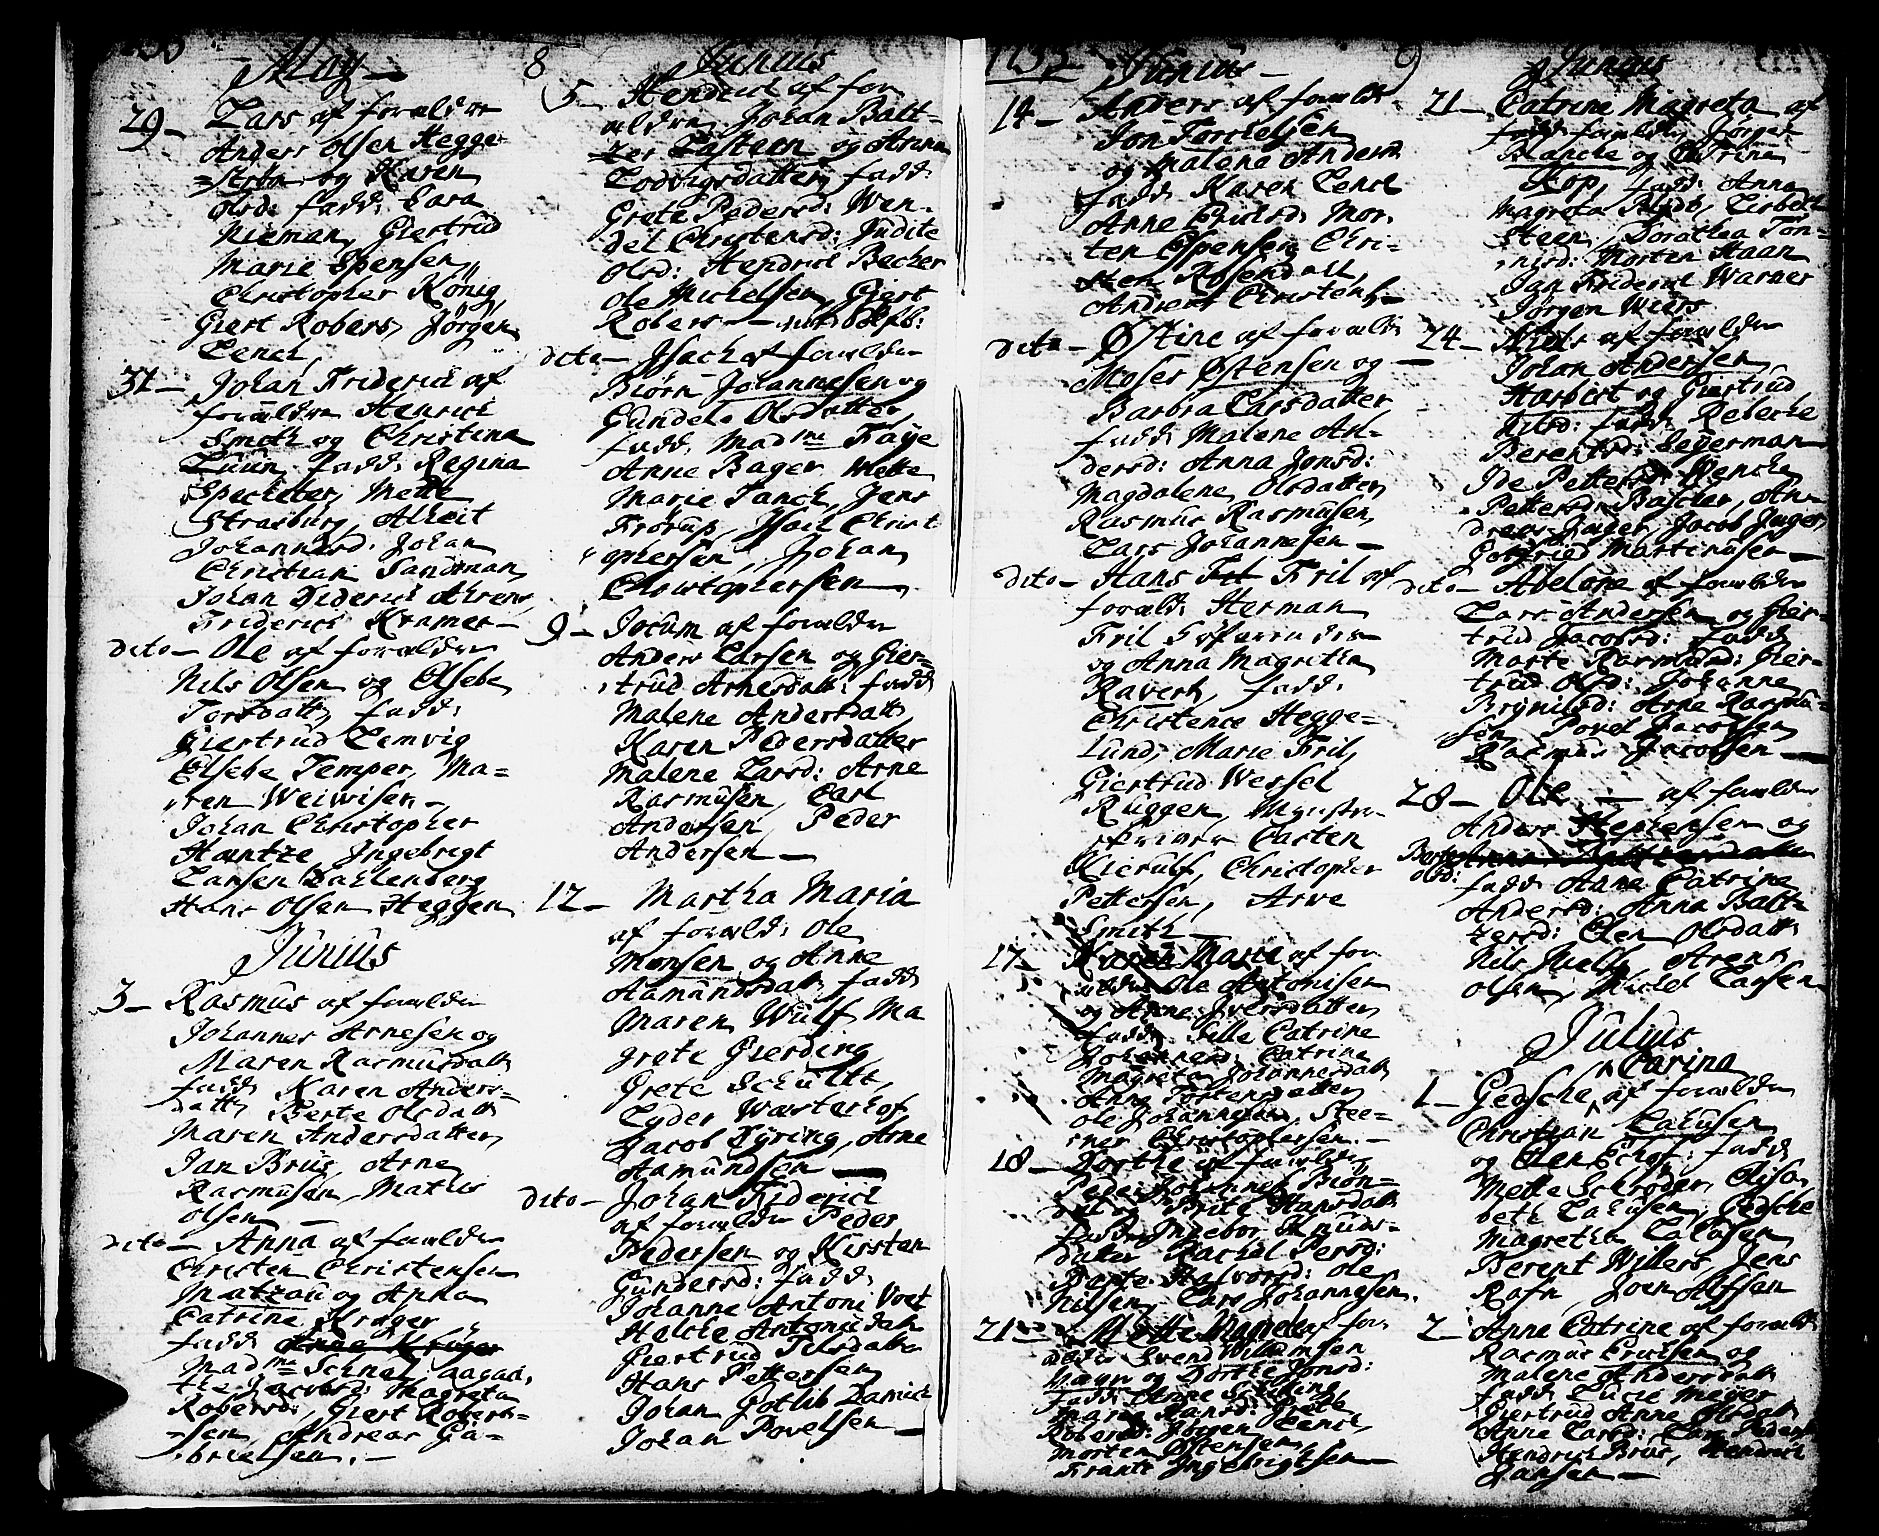 May
29 - Lars af forældre
Anders Olsen Hegge-
=ström og Karen
Olsd: fadd: Lara
Nieman, Giertrud
Marie Spensen,
Christopher König,
Giert Robers, Jørgen
Lench,
31 - Johan Friderich af
forældre Henrich
Smith og Christina
Luun, fadd: Regina
Specketer, Mette
Strasburg, Alheit
Johannesd: Johan
Christian Sandman,
Johan Diderich Ahrens,
Friderich Kramer -
dito - Ole af forældre
Nils Olsen og Elsebe
Torsdatt, fadd:
Giertrud Lemvig
Elsebe Temper, Ma=
ren Weiwisen,
Johan Christopher
Hantze Ingebrigt
Larsen Dahlenberg
Hans Olsen Heggen,
Junius
3 - Rasmus af forældre
Johannes Arnesen og
Maren Rasmusdatt
fadd: Karen Anders-
datt, Berte Olsdatt
Maren Andersdatter,
Jan Brus, Arne
Rasmusen, Matis
Olsen
dito - Anna af forældre
Christen Christensen
Matzau og Anna
Catrine Krøger
fadd:
Mad me Schnel,
Jacobsd: Magreta
Robersd:, Giert Robert-
=sen, Andreas Ga-
brielsen. -
8
Junius
5 - Hendrich af for
ældre Johan Balt-
zer Lasteen og Anna
Lodvigsdatter, fadd:
Grete Pedersd: Wen-
del Christensd: Judite
Olsd: Hendrich Becher
Ole Michelsen, Giert
Robers -
dito - Isach af forældre
Biørn Johannesen og
Gundele Olsdatter,
fadd: Mad me Faye
Anne Bager Mette
Marie Tanch, Jens
Frørup, Isach Christ
ophersen, Johan
Christophersen
9 - Jocum af forældre
Anders Larsen og Gier=
trud Arnesdatt: fadd
Malene Andersdatt,
Karen Pedersdatter
Malene Larsd: Arne
Rasmusen, Carl
Andersen, Peder
Andersen -
12 - Martha Maria
af foræld: Ole
Monsen og Anne
Aamundsdatt, fadd
Maren Wulf, Ma
grete Gierding
Grete Schultt,
Lyder Wæsterhof,
Jacob Dyring, Arne
Aamundsen
dito - Johan Fiderich
af forældre Peder
Pedersen og Kirsten
Gundersd: fadd:
Johanne Antoni Voet
Helche Antonisdatt
Giertrud Nilsdatter
Hans Pettersen
Johan Gotlib Damich
Johan Povelsen
1735
Junius -
14 - Anders af foræld:
Jon Torchelsen
og Malena Anders
fadd: Karen Lench
Anne Nielsd: Mor-
ten Espensen, Chri-
sten Rosendall,
Anders Christens -
dito - Østine af foræld:
Moses Østensen og
Barbra Larsdatter
fadd: Malene An-
dersd: Anna Jonsd:
Magdalene Olsdatter,
Rasmus Rasmusen,
Lars Johannesen -
dito - Hans Fril af
foræld: Herman
Fril
og Anna Magretha
Ravert, fadd:
Christence Hegge-
lund, Marie Fril,
Giertrud Wessel
Ruggen, Mynster-
skriver Carsten
Kierulf, Christopher
Pettersen, Arve
Smith -
17 - Karen Marie af for
ældre Ole Antonisen
og Anne Iversdatter
fadd: Sille Catrine
Johannesd: Catrine
Magreta Johannesdatt
Anne Tostensdatter
Ole Johannesen, Stee-
ner Christophersen. -
18 - Dorthe af forældre
Peder Johannes Biøn-
dal og Brite Hansdatt
fadd: Ingebor Knuds-
datter Rachel Persd:
Barte Halvorsd: Ole
Nilsen, Lars Johannesen.
21 - Mette Magrete af for-
ældre Svend Wilumsen
og Dorthe Jonsd:
fadd: Anne
Marie Hansd: Grete
Robersd: Jørgen Lench,
Morten Østensen,
Frants Ingebrigtsen
9
Junius
21 - Catrine Magreta af
forældre Jørgen
Blancke og Catrine
Kop, fadd: Anna
Magreta Rhyd, Lisbeth
Steen, Dorathea Ton-
nisd: Morten Haan
Jan Friderich Warner
Jørgen Wiers
24 - Niels af forældre
Johan Andersen
Harbirt og Giertrud
Nilsd: fadd: Rebecke
Berentsd: Segerman
Ide Pettersd: Wencke
Pettersd: Butcher, An-
dreas Jæger, Jacob Jæger,
Gotfried Martinusen
dito - Abelone af forældre
Lars Andersen og Gier-
trud Jacobsd: fadd
Marte Rasmusd: Gier-
trud Olsd: Johanne
Brynilsd: Arne Rasmu-
sen, Povel Jacobsen
Rasmus Jacobsen
28 - Ole - af forældre
Anders Stephensen og
Berte Olsd:
fadd: Anne Catrine
Andersd: Anna Balt-
zersd: Elen Olsdatt
Nils Nielsen Arent
Olsen, Michel Larsen
Julius
Carina
1 - Gedsche af forældre
Christian Lahusen
og Elen Echof: fadd
Mette Schrøder, Elisa-
beth Lahusen, Gedsche
Magretha Lahusen
Berent Willers, Jens
Rafn, Joen Alfsen
2 - Anne Catrine af foræld
Rasmus Cruisen og
Malene Andersdatt
fadd: Lucie Meyer
Giertrud Anne Olsdatt
Anne Larsd: Lars Peders
Hendrich Brus, Hendrich
Jansen -